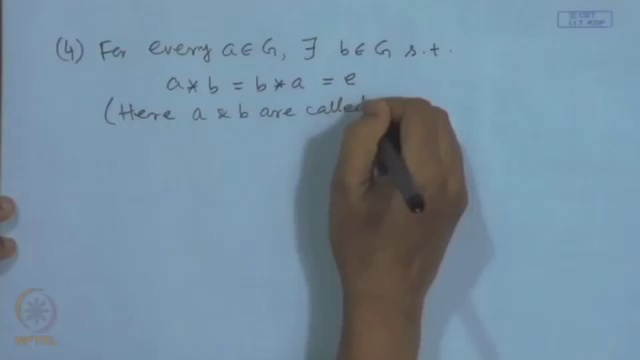 (4) For every a ∈ G, ∃ b ∈ G s.t.
a * b = b * a = e
(Here a & b are called
NPTEL